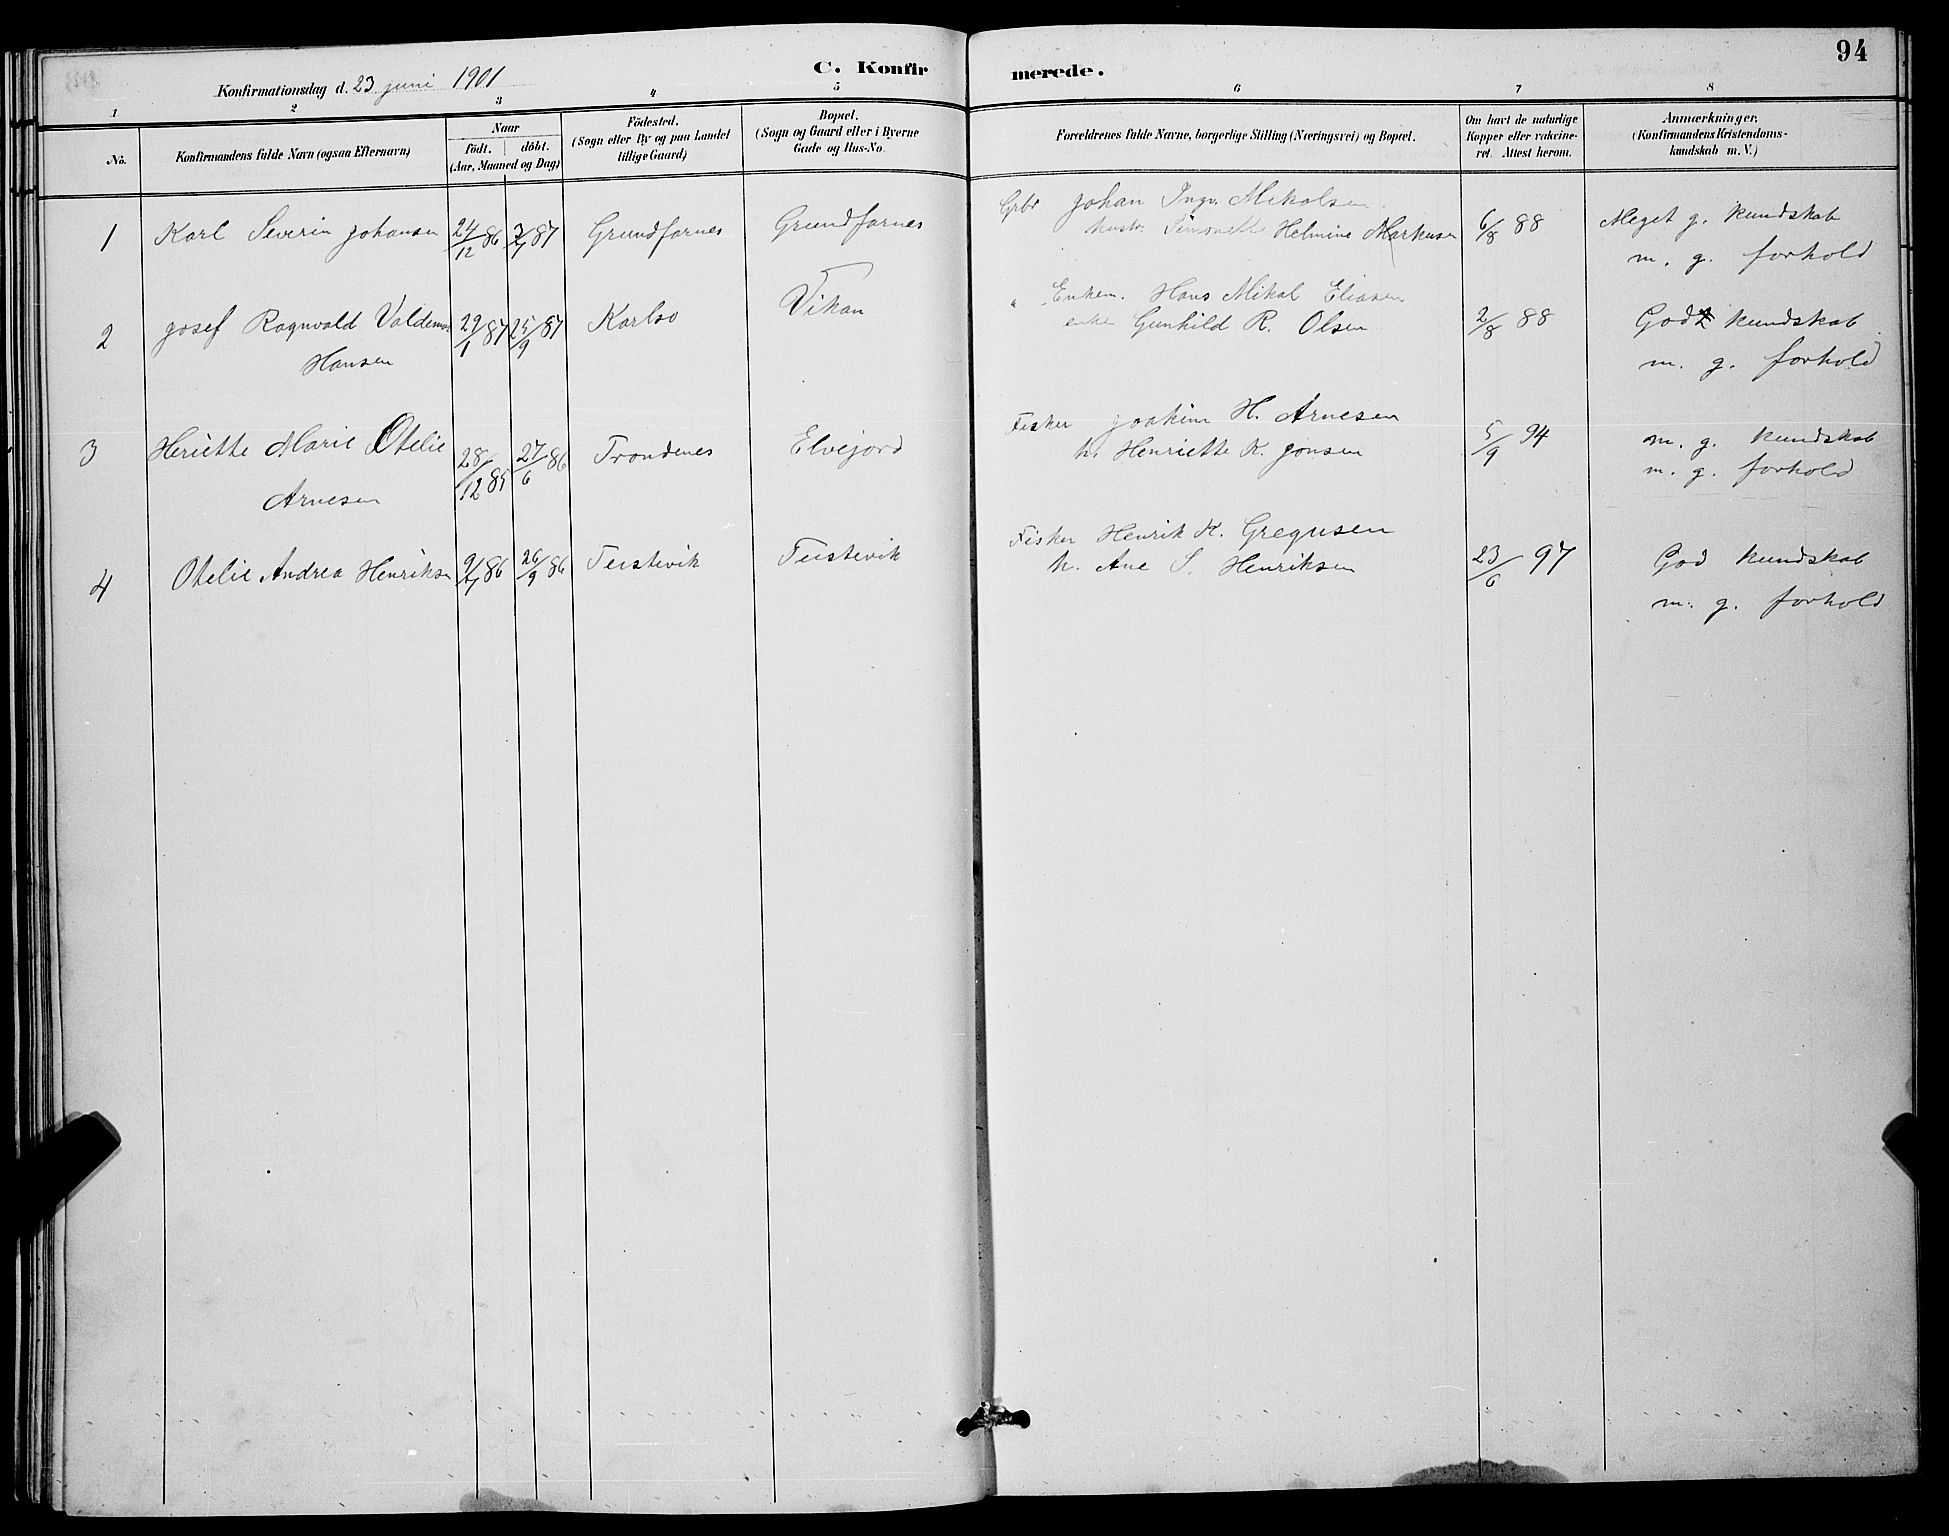 94
C. Konfirmerede.
Konfirmationsdag d. 23 juni 1901
1 2 3 4 5 6 7 8
No.
Konfirmandens fulde Navn (ogsaa Efternavn)
Naar
födt. döbt.
(Aar, Maaned og Dag)
Födested.
(Sogn eller By og paa Landet
tillige Gaard)
Bopæl.
(Sogn og Gaard eller i Byerne
Gade og Hus-No.
Forældrenes fulde Navne, borgerlige Stilling (Næringsvei) og Bopæl.
Om havt de naturlige
Kopper eller vakcine-
ret. Attest herom.
Anmærkninger.
(Konfirmandens Kristendoms-
kundskab m. V.)
1 Karl Severin Johansen 24/12 86 87 Grundfarnes Grundfarnes Gbr Johan Ingv. Mikalsen 6/8 88 Meget g. kundskab
hustr. Simonette Helmine Markusen m. g. forhold
2 Josef Ragnvald Valdemar 29/1 87 25/9 87 Karlsö Vikan " Enkem. Hans Mikal Eliasen 2/8 88 God kundskab
Hansen enke Gunhild R. Olsen m. g. forhold
3 Heriette Marie Otelie 28/12 85 27/6 86 Trondenes Elvejord Fisker Joakim H. Arnesen 5/9 94 m. g. kundskab
Arnesen h. Henriette K. Jonsen m. g. forhold
4 Otelie Andrea Henriksen 9/7 86 26/9 86 Teistevik Teistevik Fisker Henrik K. Gregusen 23/6 97 God kundskab
h. Ane S. Henriksen m. g. forhold